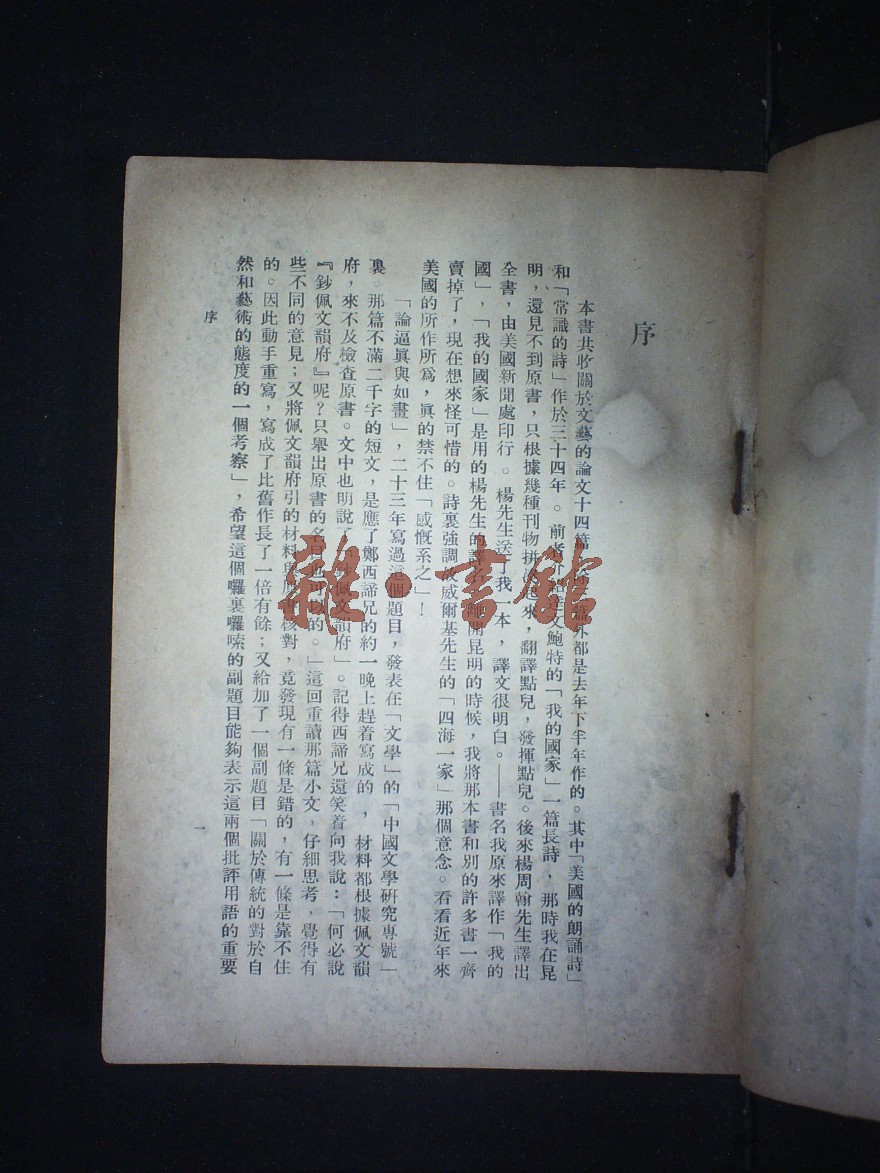 序
本書共收關於文藝的論文十四篇，除三篇外都是去年下半年作的。其中「美國的朗誦詩」
和「常識的詩」作於三十四年。前者介紹達文鮑特的「我的國家」一篇長詩，那時我在昆
明，還見不到原書，只根據幾種刊物拼湊起來，翻譯點兒，發揮點兒。後來楊周翰先生譯出
全書，由美國新聞處印行。楊先生送了我一本，譯文很明白。——書名我原來譯作「我的
國」，「我的國家」是用的楊先生的譯名。離開昆明的時候，我將那本書和別的許多書一齊
賣掉了，現在想來怪可惜的。詩裏強調故威爾基先生的「四海一家」那個意念。看看近年來
美國的所作所爲，眞的禁不住「感慨系之」！
「論逼眞與如畫」，二十三年寫過這個題目，發表在「文學」的「中國文學硏究專號」
裏。那篇不滿二千字的短文，是應了鄭西諦兄的約一晚上趕着寫成的，材料都根據佩文韻
府，來不及檢查原書。文中也明說了「鈔佩文韻府」。記得西諦兄還笑着向我說：「何必說
『鈔佩文韻府』呢？只舉出原書的名目也可以的。」這回重讀那篇小文，仔細思考，覺得有
些不同的意見；又將佩文韻府引的材料與原書核對，竟發現有一條是錯的，有一條是靠不住
的。因此動手重寫，寫成了比舊作長了一倍有餘；又給加了一個副題目「關於傳統的對於自
然和藝術的態度的一個考察」，希望這個囉裏囉嗦的副題目能夠表示這兩個批評用語的重要
序
一
雜·書館